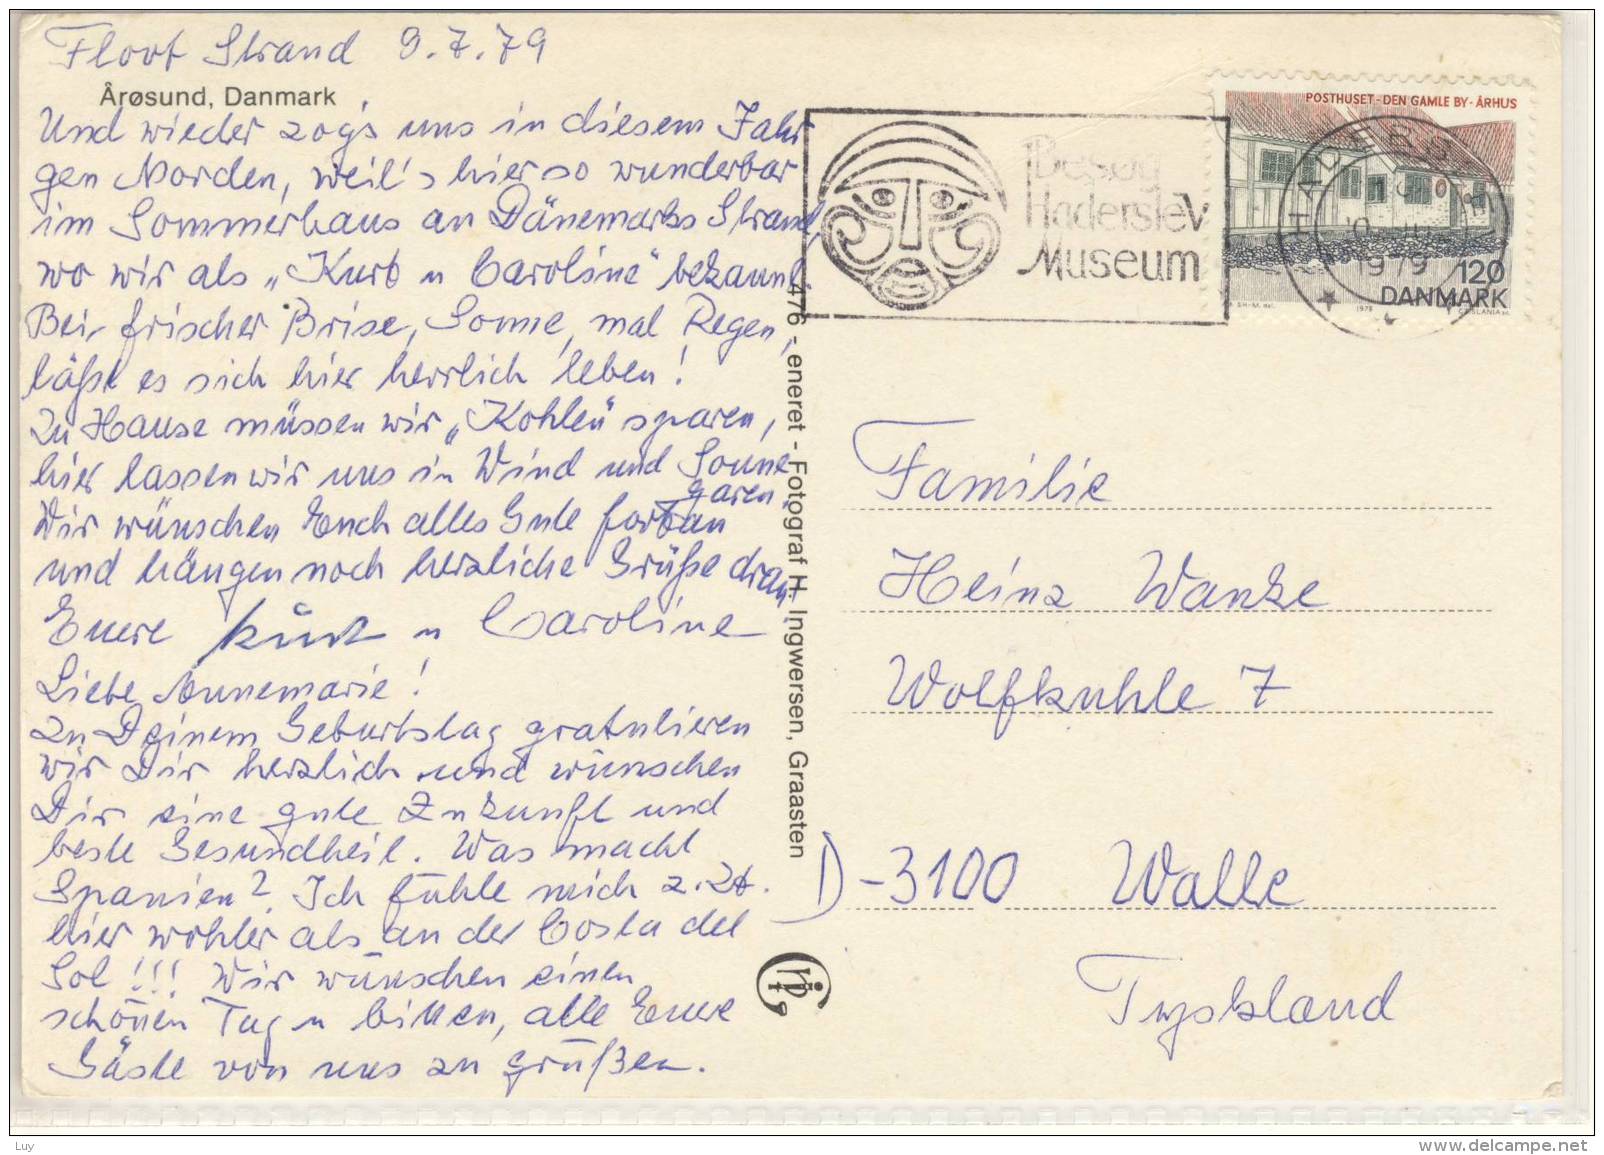 Floot Strand 9.7.79
Årøsund, Danmark
Und wieder zog's uns in diesem Jahr
gen Norden, weil's hier so wunderbar
im Sommerhaus an Dänemarks Strand,
wo wir als „Kurt u Caroline" bekannt.
Bei frischer Brise, Sonne, mal Regen,
läßt es sich hier herrlich leben!
Zu Hause müssen wir „Kohlen" sparen,
hier lassen wir uns in Wind und Sonne
garen.
Wir wünschen Euch alles Gute fortan
und hängen noch herzliche Grüße dran,
Euere Kurt u Caroline
Liebe Annemarie!
Zu Deinem Geburtstag gratulieren
wir Dir herzlich und wünschen
Dir eine gute Zukunft und
beste Gesundheit. Was macht
Spanien? Ich fühle mich z. Zt.
hier wohler als an der Costa del
Sol!!! Wir wünschen einen
schönen Tag u bitten, alle Euere
Gäste von uns zu grüßen.
476 - eneret - Fotograf H. Ingwersen, Graasten
Besøg
Haderslev
Museum
POSTHUSET - DEN GAMLE BY - ÅRHUS
HADERSLEV
1979
120
DANMARK
1978
CZ SLANIA sc.
Familie
Heinz Wanke
Wolfkuhle 7
D-3100 Walle
Tyskland
Luy
www.delcampe.net